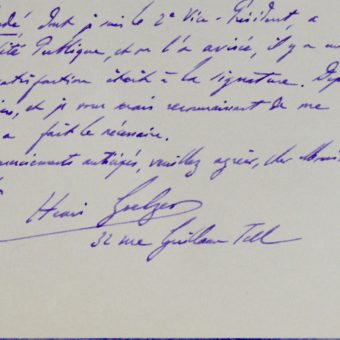 dont je suis le 2e Vice-Président a
Publique, et on l'a avisée, il y a
satisfaction était à la signature.
et je vous serais reconnaissant de me
a fait le nécessaire.
remerciements anticipés, veuillez agréer, cher
Henri Goelzer
32 rue Guillaume Tell